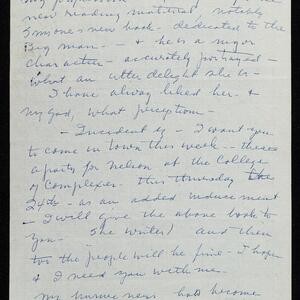 my
new reading material notably
Simone's new book - dedicated to the
Big man - & he is a major
character - accurately portrayed -
what an utter delight she is -
I have always liked her - &
my God, what perception -
- I want you
to come in town this week - theres
a party for Nelson at the College
of Complexes - this Thursday the
24th - as an added inducement
- I will give the above book to
you - She writes! and then
too the people will be fine - I hope
& I need you with me.
My had become